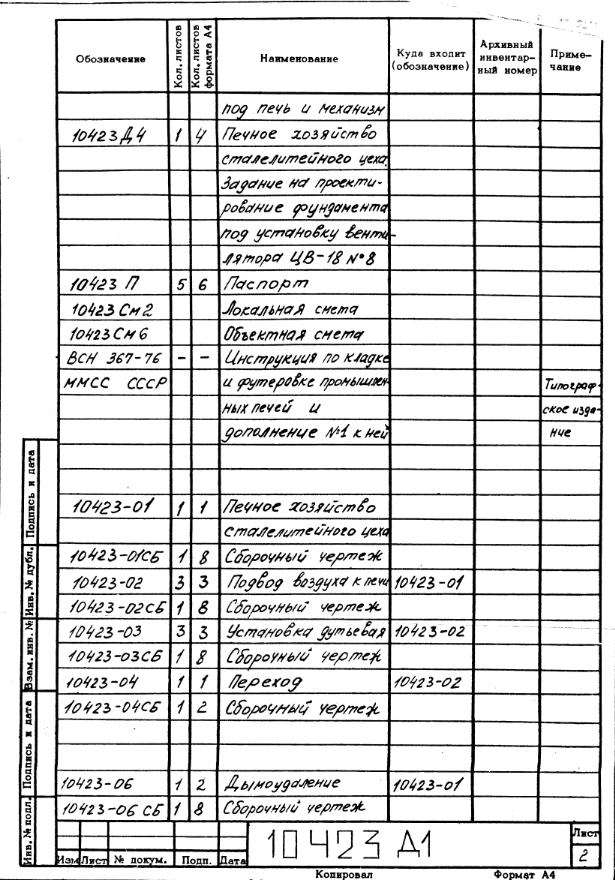 Обозначение | Кол. листов | Кол. листов формата А4 | Наименование | Куда входит (обозначение) | Архивный инвентар- ный номер | Приме- чание
под печь и механизм
10423 Д4 | 1 | 4 | Печное хозяйство
сталелитейного цеха.
Задание на проекти-
рование фундамента
под установку венти-
лятора ЦВ-18 №8
10423 П | 5 | 6 | Паспорт
10423 См2 | Локальная смета
10423 См6 | Объектная смета
ВСН 367-76 | – | – | Инструкция по кладке
ММСС СССР | и футеровке промышлен- | Типограф-
ных печей и | ское изда-
дополнение №1 к ней | ние
10423-01 | 1 | 1 | Печное хозяйство
сталелитейного цеха
10423-01СБ | 1 | 8 | Сборочный чертеж
10423-02 | 3 | 3 | Подвод воздуха к печи | 10423-01
10423-02СБ | 1 | 8 | Сборочный чертеж
10423-03 | 3 | 3 | Установка дутьевая | 10423-02
10423-03СБ | 1 | 8 | Сборочный чертеж
10423-04 | 1 | 1 | Переход | 10423-02
10423-04СБ | 1 | 2 | Сборочный чертеж
10423-06 | 1 | 2 | Дымоудаление | 10423-01
10423-06 СБ | 1 | 8 | Сборочный чертеж
Подпись и дата
Инв. № дубл.
Взам. инв. №
Подпись и дата
Инв. № подл.
Изм | Лист | № докум. | Подп. | Дата
10423 Д1
Лист
2
Копировал
Формат А4